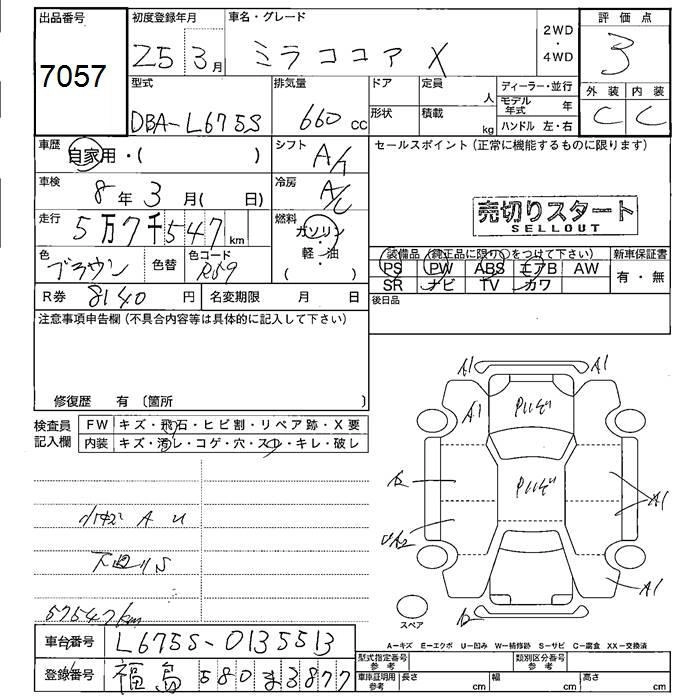 出品番号
7057
初度登録年月
25 3月
車名・グレード
ミラココア X
2WD
・
4WD
評価点
3
型式
DBA-L675S
排気量
660 cc
ドア
定員
人
形状
積載
kg
ディーラー・並行
モデル年式 年
ハンドル 左・右
外装 内装
C C
車歴
自家用・( )
シフト
A/T
セールスポイント(正常に機能するものに限ります)
車検
8年 3月( 日)
冷房
A/C
売切りスタート
SELLOUT
走行
5万7千547km
燃料
ガソリン
軽・油
( )
色
ブラウン
色替
色コード
R59
装備品(純正品に限り○をつけて下さい)
新車保証書
PS PW ABS エアB AW
SR ナビ TV カワ
有・無
R券 8140 円
名変期限 月 日
後日品
注意事項申告欄(不具合内容等は具体的に記入して下さい)
修復歴 有〔箇所 〕
検査員
記入欄
FW キズ・飛石・ヒビ割・リペア跡・X要
内装 キズ・汚レ・コゲ・穴・スレ・キレ・破レ
A1 A1
A1
A1
A1
A U
下回りS
57547km
スペア
A-キズ E-エクボ U-凹み W-補修跡 S-サビ C-腐食 XX-交換済
車台番号 L675S-0135513
登録番号 福島 580 ま3877
型式指定番号
参考
類別区分番号
参考
車庫証明用
参考
長さ cm
幅 cm
高さ cm